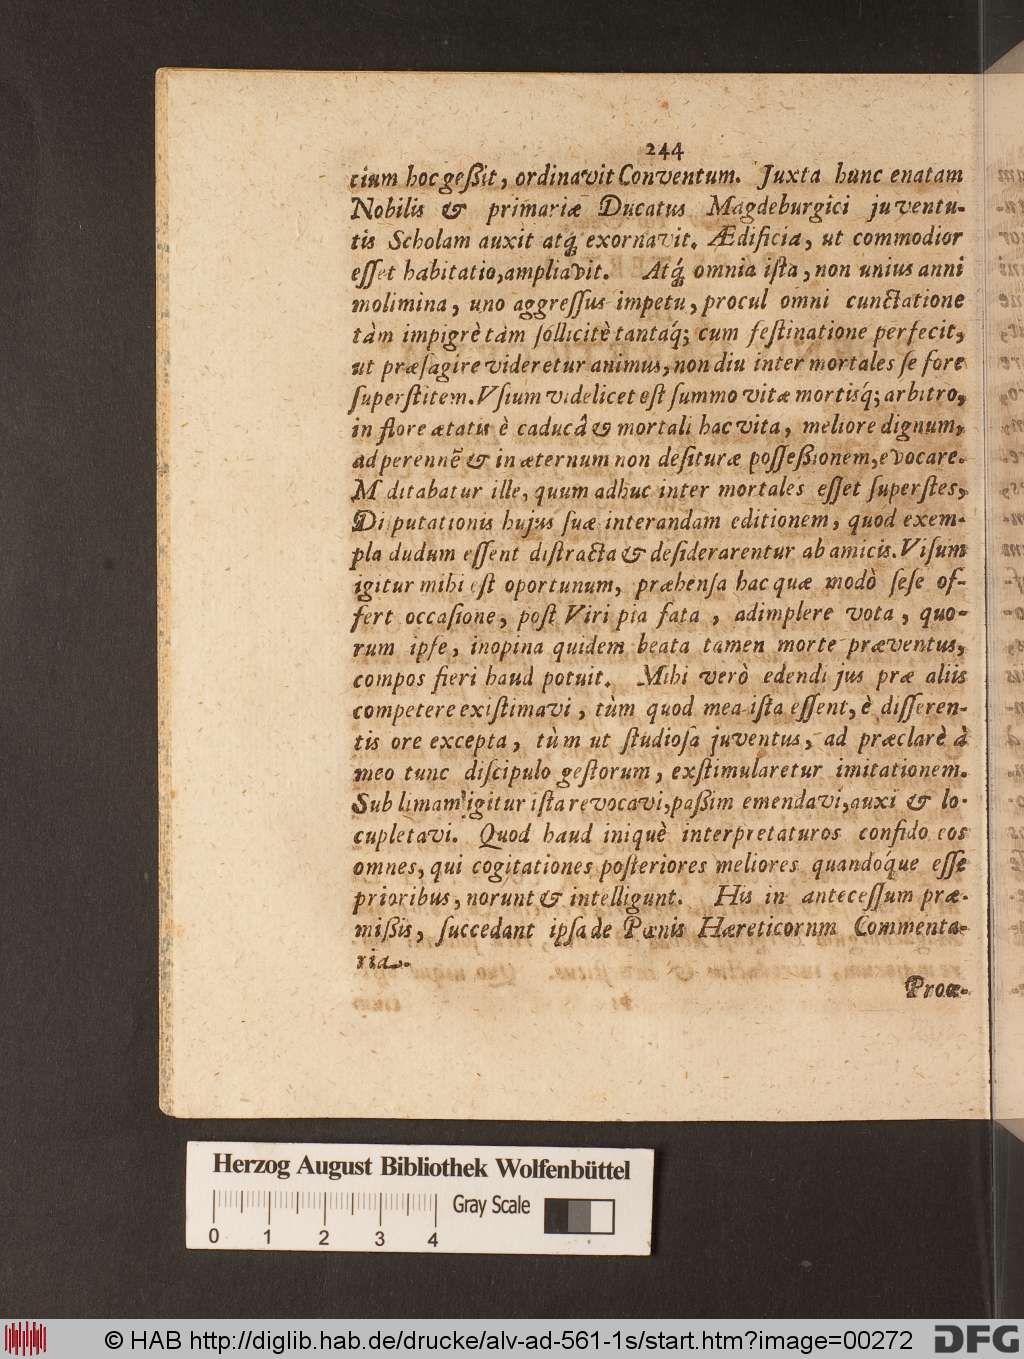 244
cium hoc geßit, ordinavit Conventum. Juxta hunc enatam
Nobilis & primariæ Ducatus Magdeburgici juventu-
tis Scholam auxit atq; exornavit. Ædificia, ut commodior
eſſet habitatio, ampliavit. Atq́; omnia iſta, non unius anni
molimina, uno aggreſſus impetu, procul omni cunctatione
tàm impigrè tàm ſollicitè tantaq́; cum feſtinatione perfecit,
ut præſagire videretur animus, non diu inter mortales ſe fore
ſuperſtitem. Vſium videlicet eſt ſummo vitæ mortisq́; arbitro,
in flore ætatis è caducâ & mortali hac vita, meliore dignum,
ad perennē & in æternum non deſituræ poſſeßionem, evocare.
M ditabatur ille, quum adhuc inter mortales eſſet ſuperſtes,
Di putationis hujus ſuæ interandam editionem, quod exem-
pla dudum eſſent diſtracta & deſiderarentur ab amicis. Viſum
igitur mihi eſt oportunum, præhenſa hac quæ modò ſeſe of-
fert occaſione, poſt Viri pia fata, adimplere vota, quo-
rum ipſe, inopina quidem beata tamen morte præventus,
compos fieri haud potuit. Mihi verò edendi jus præ aliis
competere exiſtimavi, tùm quod mea iſta eſſent, è differen-
tis ore excepta, tùm ut ſtudioſa juventus, ad præclarè à
meo tunc diſcipulo geſtorum, exſtimularetur imitationem.
Sub limam igitur iſta revocavi, paßim emendavi, auxi & lo-
cupletavi. Quod haud iniquè interpretaturos confido eos
omnes, qui cogitationes poſteriores meliores quandoq́ue eſſe
prioribus, norunt & intelligunt. His in anteceſſum præ-
mißis, ſuccedant ipſa de Pœnis Hæreticornm Commenta-
ria.
Proœ-
Herzog August Bibliothek Wolfenbüttel
Gray Scale
0 1 2 3 4
© HAB http://diglib.hab.de/drucke/alv-ad-561-1s/start.htm?image=00272
DFG